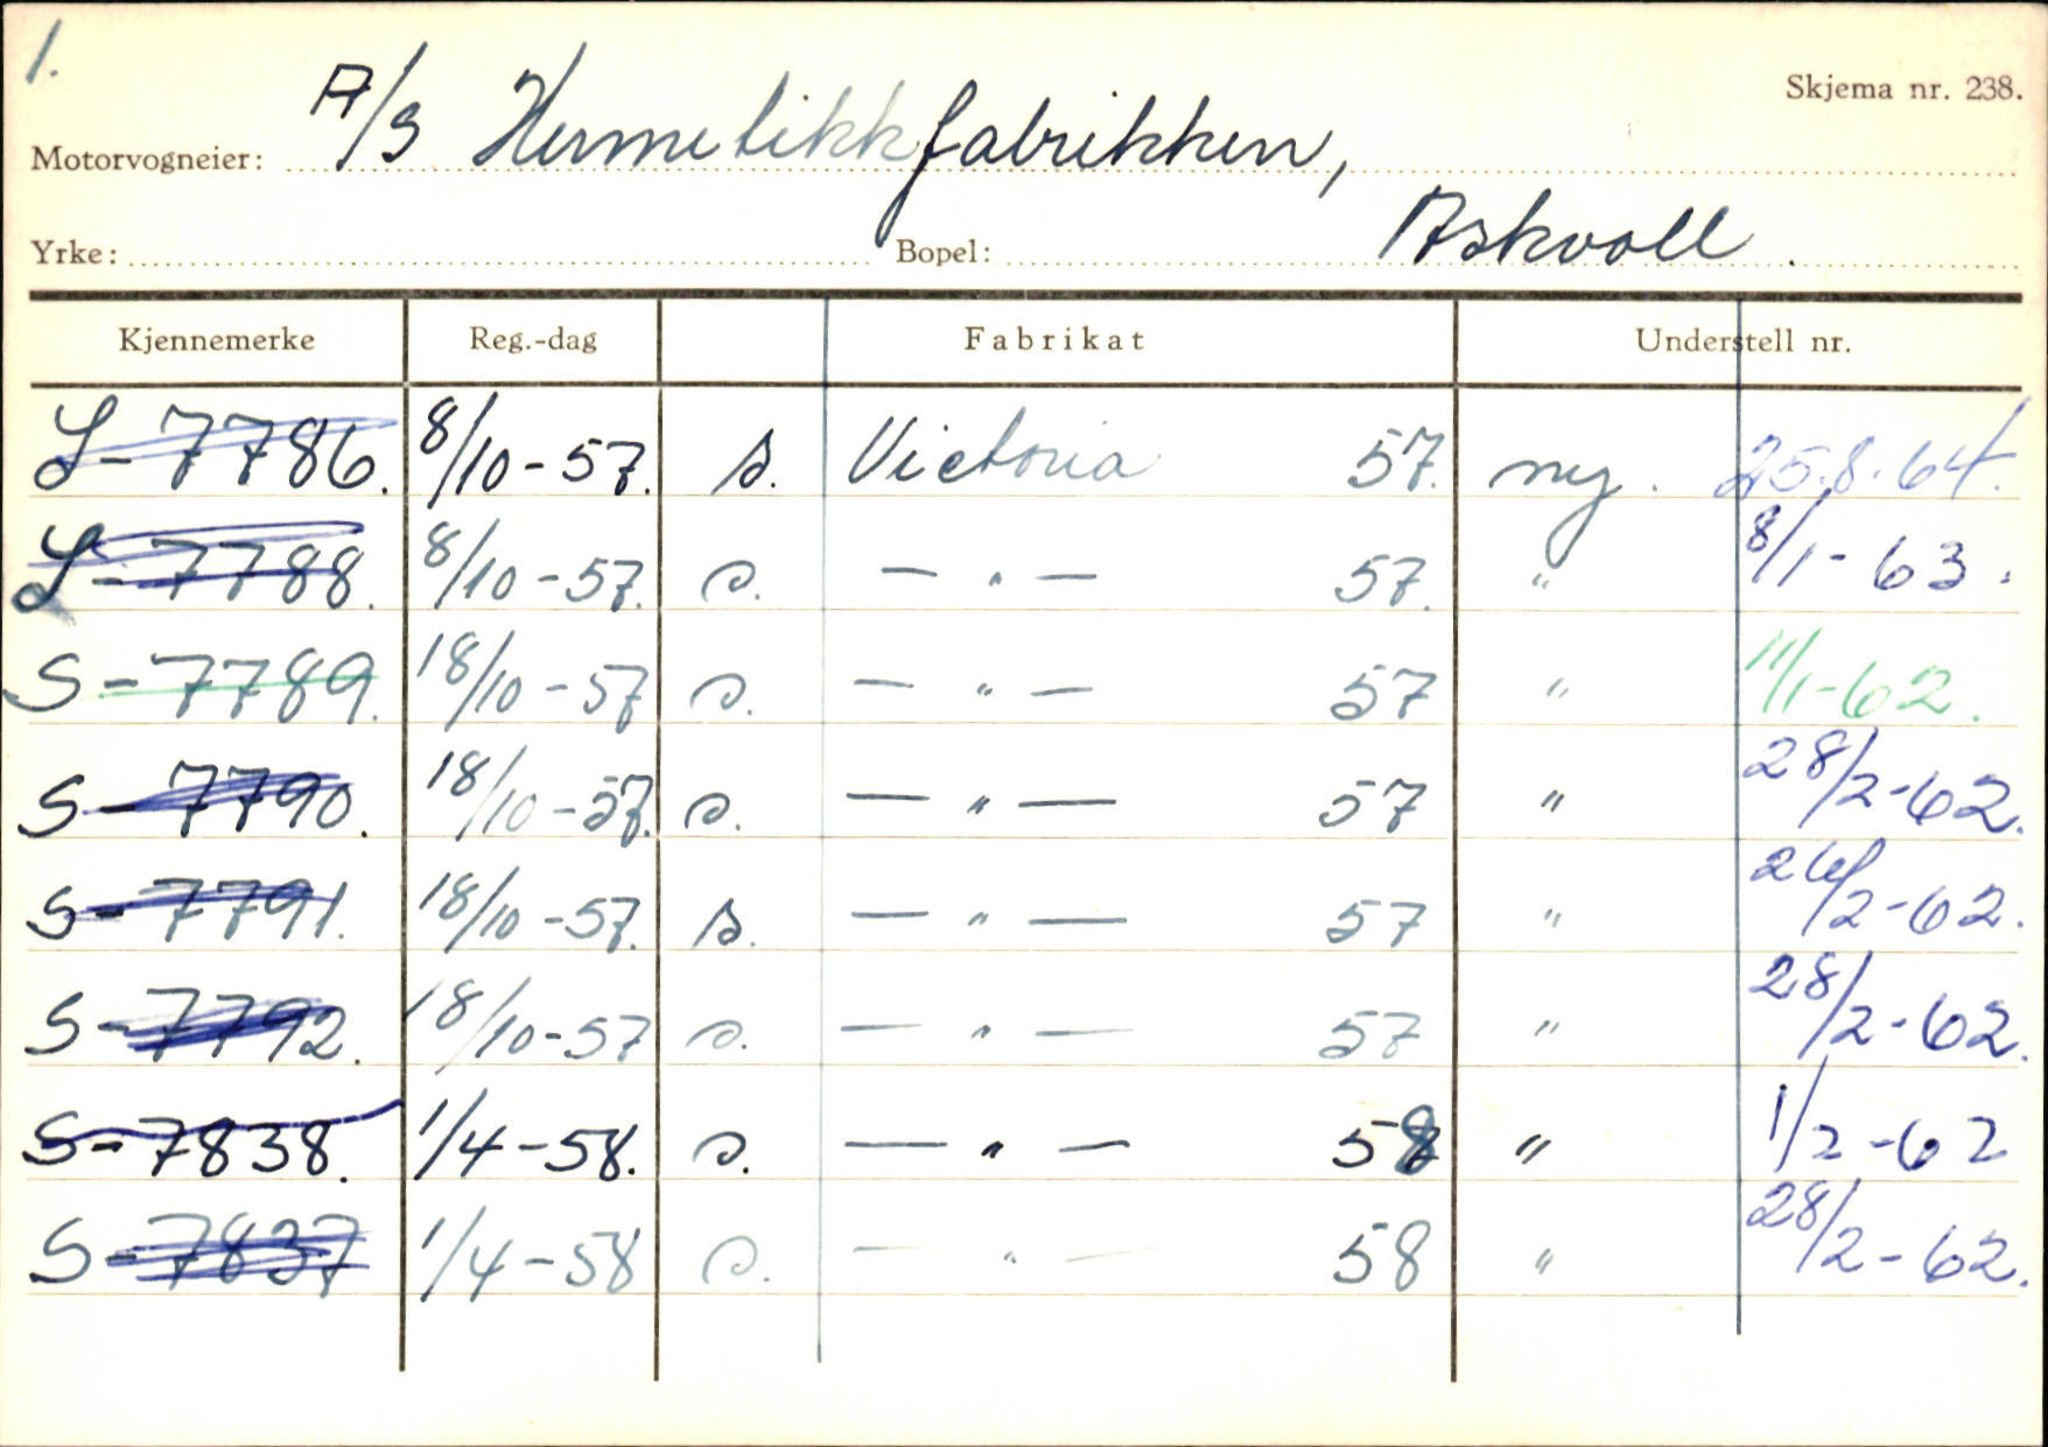 1.
Skjema nr. 238.
Motorvogneier: A/S Hermetikkfabrikken,
Yrke: Bopel: Askvoll.
Kjennemerke Reg.-dag Fabrikat Understell nr.
S-7786. 8/10-57. s. Victoria 57. ny. 25.8.64.
S-7788. 8/10-57. s. — " — 57. " 8/1-63.
S-7789. 18/10-57 s. — " — 57 " 11/1-62.
S-7790. 18/10-57. s. — " — 57 " 28/2-62.
S-7791. 18/10-57. s. — " — 57 " /2-62.
S-7792. 18/10-57 s. — " — 57 " 28/2-62.
S-7838. 1/4-58. s. — " — 58 " 1/2-62
S-7837 1/4-58 s. — " — 58 " 28/2-62.